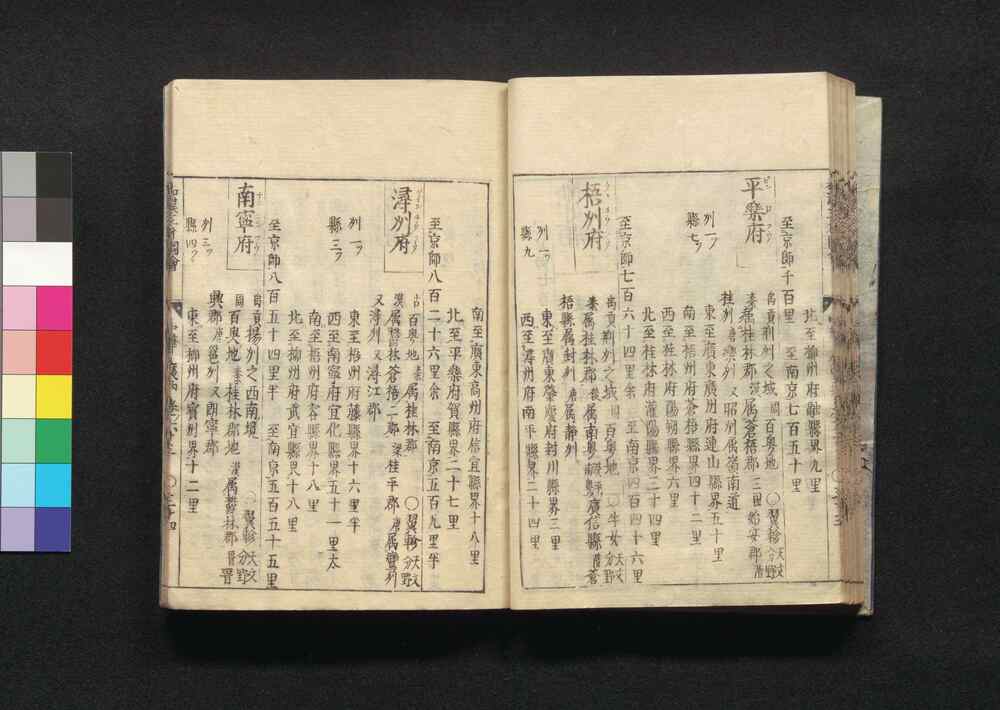 北至柳州府融縣界九里
至京師千百里　至南京七百五十里
平樂府
州一ツ
縣七ツ
禹貢荊州之域　周百粤地　○翼軫分野天文
秦属桂林郡　漢属蒼梧郡　三里始安郡
桂州　唐樂州　又昭州属嶺南道
東至廣東廣州府連山縣界五十里
南至梧州府蒼梧縣界四十二里
西至桂林府陽朔縣界六里
北至桂林府灌陽縣界二十四里
至京師七百六十四里余　至南京四百四十六里
梧州府
州一ツ
縣九
禹貢荊州之域　周百粤地　○牛女分野天文
秦属桂林郡　後属南粤　漢平南粤廣信縣　晋蒼
梧縣属封州　唐属静州
東至廣東肇慶府封川縣界三里
西至潯州府南平縣界二十四里
南至廣東高州府信宜縣界十八里
北至平樂府賀縣界二十七里
至京師八百二十六里余　至南京五百九里半
潯州府
州一ツ
縣三ツ
古百粤地　秦属桂林郡　○翼軫分野天文
漢属欝林蒼梧二郡　梁桂平郡　唐属鸞州
又潯州　又潯江郡
東至梧州府藤縣界十六里半
西至南寧府宜化縣界五十一里太
南至梧州府容縣界十八里
北至柳州府武宣縣界十八里
至京師八百五十四里半　至南京五百五十五里
南寧府
州三ツ
縣四ツ
禹貢揚州之西南境　○翼軫分野天文
周百奥地　秦桂林郡地　漢属欝林郡　晋晋
興郡　唐邕州　又朗寧郡
東至柳州府賓州界十二里